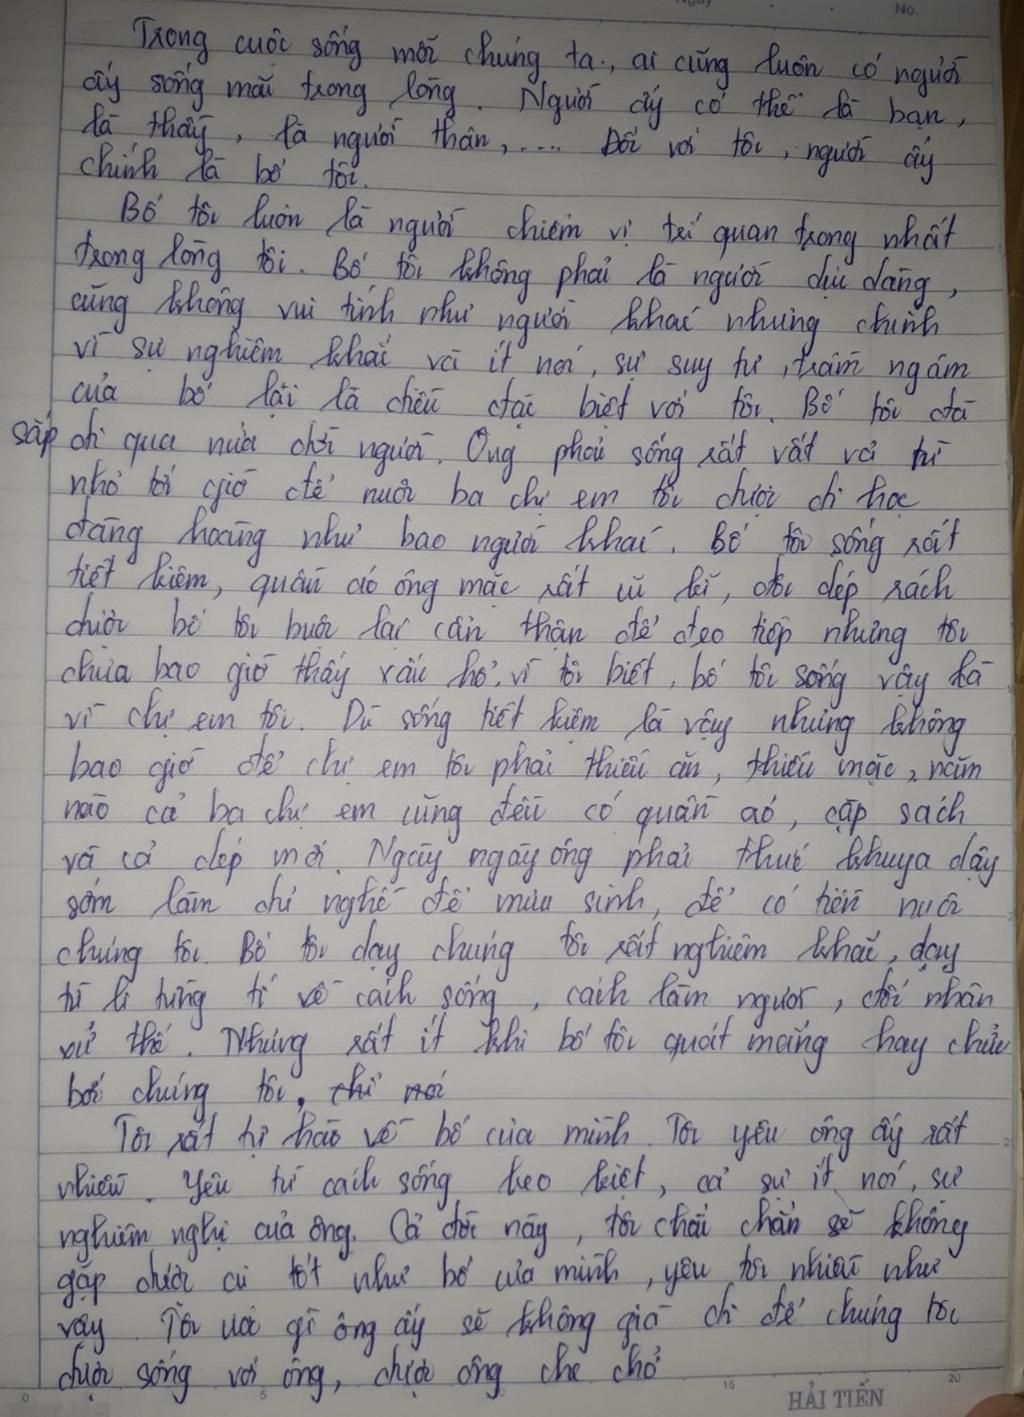 No.
Trong cuộc sống mỗi chúng ta, ai cũng luôn có người
ấy sống mãi trong lòng. Người ấy có thể là bạn,
là thầy, là người thân,.... Đối với tôi, người ấy
chính là bố tôi.
Bố tôi luôn là người chiếm vị trí quan trọng nhất
trong lòng tôi. Bố tôi không phải là người dịu dàng,
cũng không vui tính như người khác nhưng chính
vì sự nghiêm khắc và ít nói, sự suy tư, trầm ngâm
của bố lại là điều đặc biệt với tôi. Bố tôi đã
sắp đi qua nửa đời người. Ông phải sống rất vất vả từ
nhỏ tới giờ để nuôi ba chị em tôi được đi học
đàng hoàng như bao người khác. Bố tôi sống rất
tiết kiệm, quần áo ông mặc rất cũ kĩ, đôi dép rách
được bố tôi buộc lại cẩn thận để đeo tiếp nhưng tôi
chưa bao giờ thấy xấu hổ, vì tôi biết, bố tôi sống vậy là
vì chị em tôi. Dù sống tiết kiệm là vậy nhưng không
bao giờ để chị em tôi phải thiếu ăn, thiếu mặc, năm
nào cả ba chị em cũng đều có quần áo, cặp sách
và cả dép mới. Ngày ngày ông phải thức khuya dậy
sớm làm đủ nghề để mưu sinh, để có tiền nuôi
chúng tôi. Bố tôi dạy chúng tôi rất nghiêm khắc, dạy
từ li từng tí về cách sống, cách làm người, đối nhân
xử thế. Nhưng rất ít khi bố tôi quát mắng hay chửi
bới chúng tôi, chỉ nói
Tôi rất tự hào về bố của mình. Tôi yêu ông ấy rất
nhiều. Yêu từ cách sống keo kiệt, cả sự ít nói, sự
nghiêm nghị của ông. Cả đời này, tôi chắc chắn sẽ không
gặp được ai tốt như bố của mình, yêu tôi nhiều như
vậy. Tôi ước gì ông ấy sẽ không già đi để chúng tôi
được sống với ông, được ông che chở
0 5 15 20
HẢI TIẾN